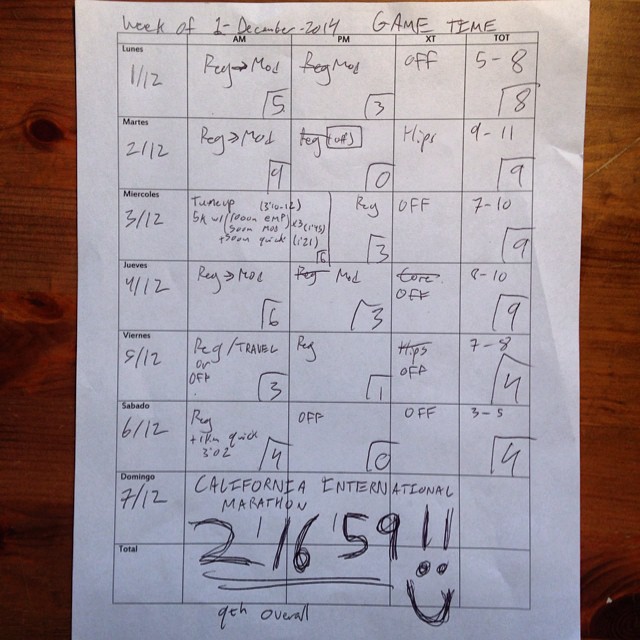 week of 1-December-2014 GAME TIME
AM PM XT TOT
Lunes
1/12 Reg→Mod Reg Mod OFF 5-8
5 3 8
Martes
2/12 Reg→Mod Reg (off) Hips 9-11
9 0 9
Miercoles
3/12 Tuneup (3'10-12) Reg OFF 7-10
5k w/1000m EMP
500m MOD x3 (1'45)
+500m quick (1'21)
6 3 9
Jueves
4/12 Reg→Mod Reg Mod Core 8-10
OFF
6 3 9
Viernes
5/12 Reg/TRAVEL Reg Hips 7-8
or OFF
OFF
3 1 4
Sabado
6/12 Reg OFF OFF 3-5
+1km quick
3'02
4 0 4
Domingo
7/12 CALIFORNIA INTERNATIONAL
MARATHON
2'16'59!!
Total
9th overall